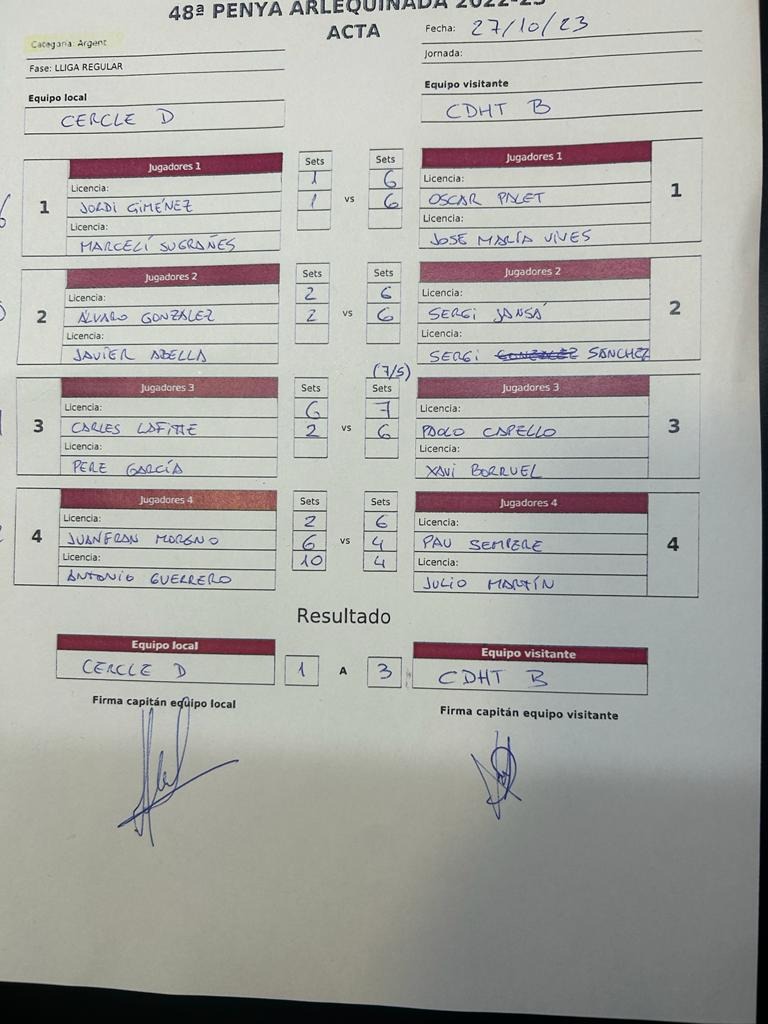 48ª PENYA ARLEQUINADA 2022-23
ACTA
Fecha: 27/10/23
Categoria: Argent
Jornada:
Fase: LLIGA REGULAR
Equipo local
Equipo visitante
CERCLE D
CDHT B
Jugadores 1 Sets Sets Jugadores 1
Licencia: 1 6 Licencia:
1 JORDI GIMÉNEZ 1 vs 6 OSCAR PALET 1
Licencia: Licencia:
MARCELÍ SUGRAÑES JOSE MARÍA VIVES
Jugadores 2 Sets Sets Jugadores 2
Licencia: 2 6 Licencia:
2 ÁLVARO GONZALEZ 2 vs 6 SERGI JANSÁ 2
Licencia: Licencia:
JAVIER ABELLA SERGI GONZALEZ SÁNCHEZ
(7/5)
Jugadores 3 Sets Sets Jugadores 3
Licencia: 6 7 Licencia:
3 CARLES LAFITTE 2 vs 6 PAOLO CAPELLO 3
Licencia: Licencia:
PERE GARCÍA XAVI BORRUEL
Jugadores 4 Sets Sets Jugadores 4
Licencia: 2 6 Licencia:
4 JUANFRAN MORENO 6 vs 4 PAU SEMPERE 4
Licencia: 10 4 Licencia:
ANTONIO GUERRERO JULIO MARTÍN
Resultado
Equipo local Equipo visitante
CERCLE D 1 A 3 CDHT B
Firma capitán equipo local Firma capitán equipo visitante